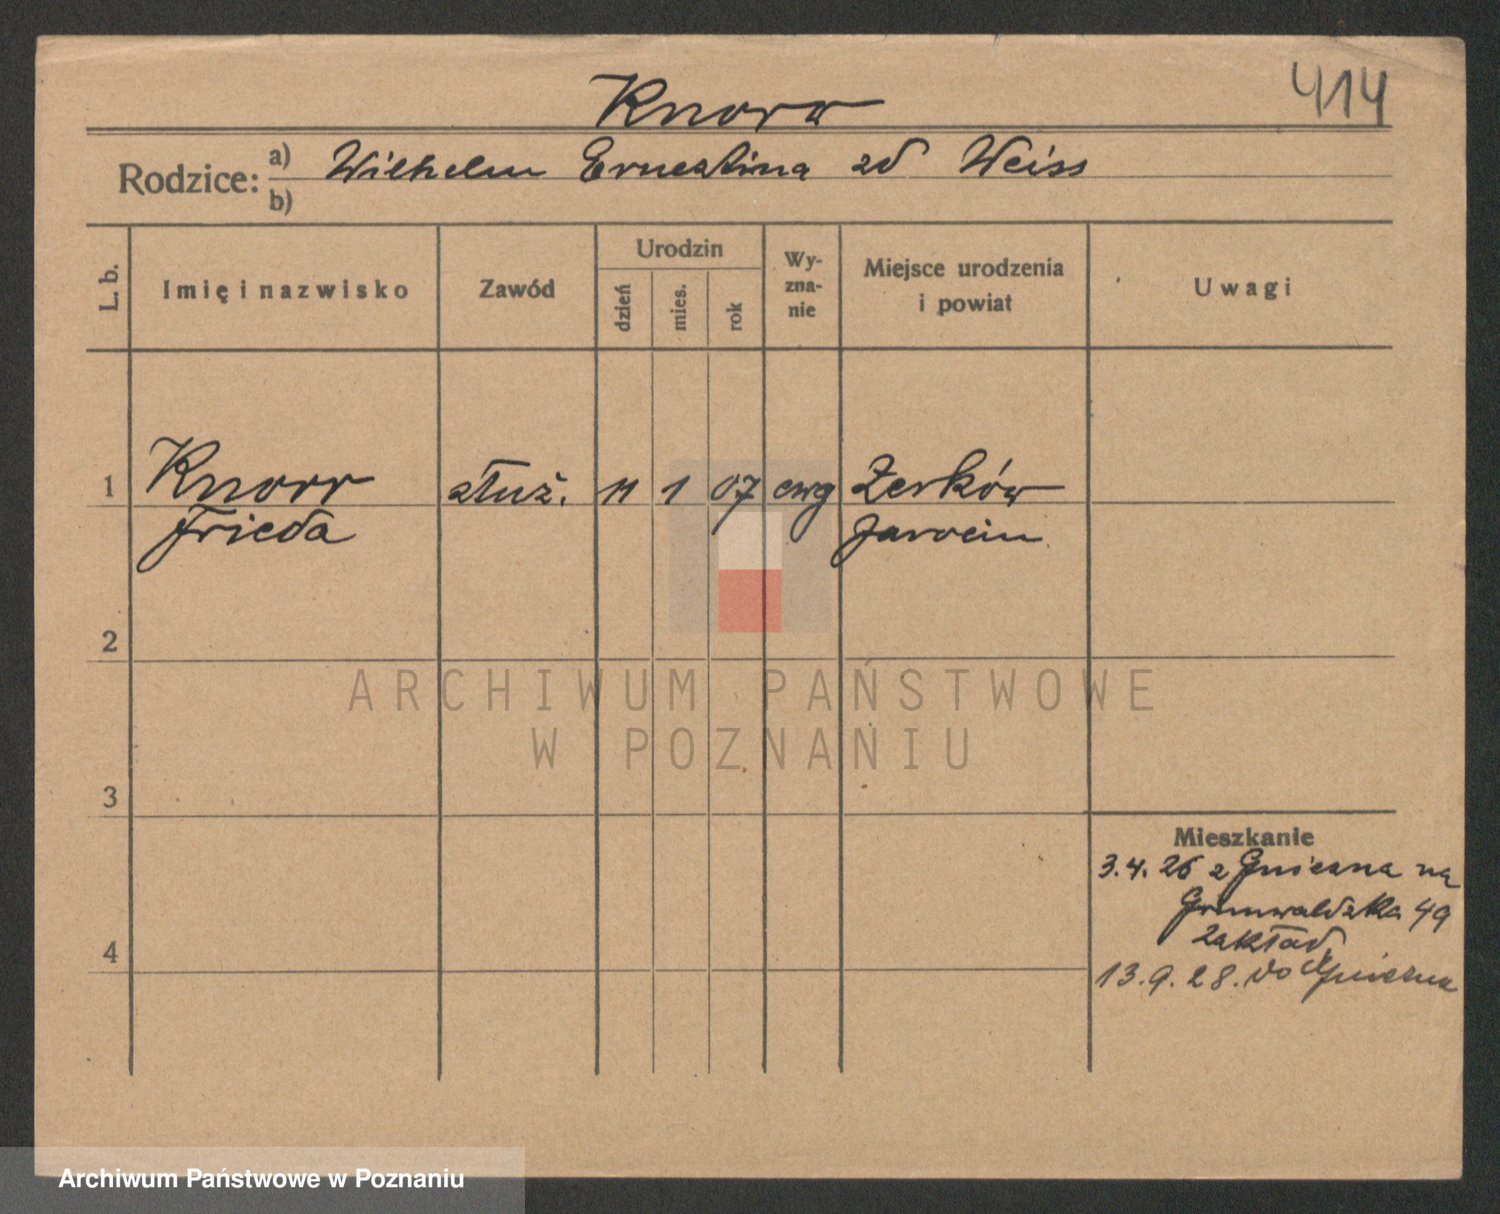 Knorr
414
Rodzice: a) Wilhelm Ernestina zd Weiss
b)
L. b.
Imię i nazwisko
Zawód
Urodzin
dzień
mies.
rok
Wy-
zna-
nie
Miejsce urodzenia
i powiat
Uwagi
1 Knorr służ. 11 1 07 ewg Żerków
Frieda Jarocin
2
ARCHIWUM PAŃSTWOWE
W POZNANIU
3
Mieszkanie
3.4.26 z Gniezna na
Grunwaldzka 49
zakład
4
13.9.28. do Gniezna
Archiwum Państwowe w Poznaniu